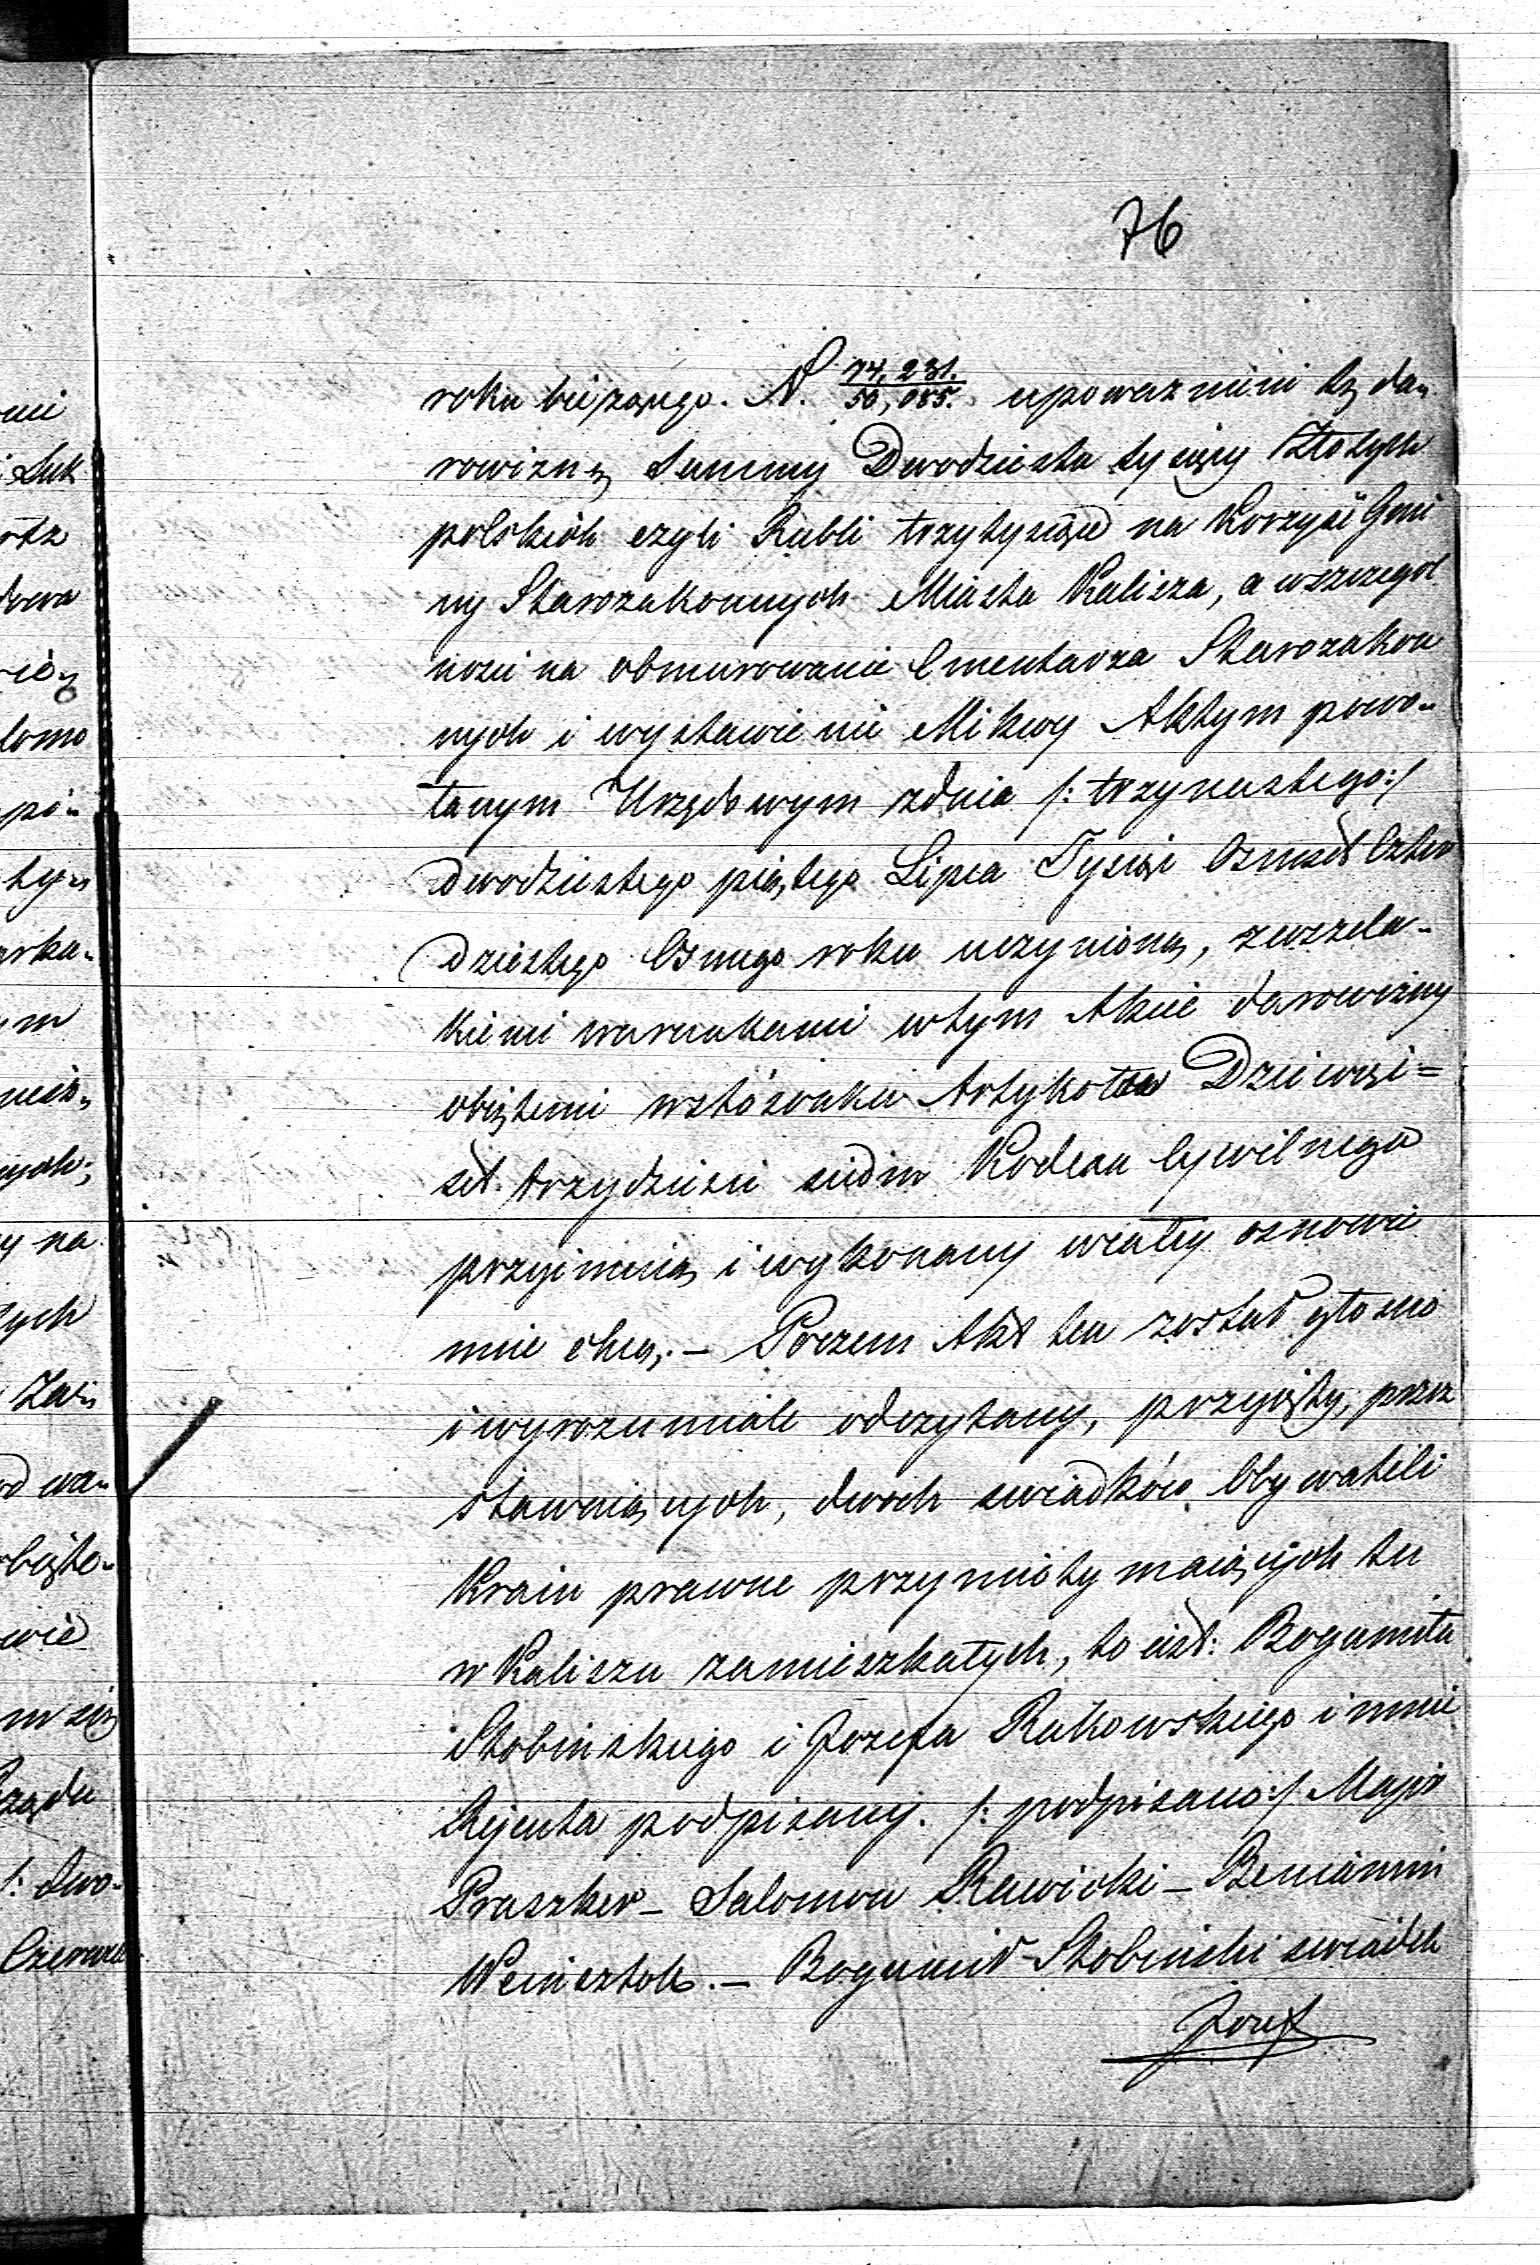 76
roku bieżącego. N. 74,231./50,085. upoważnieni tę da„
rowiznę Summy Dwodziesta tysięcy Złotych
polskich czyli Rubli trzytysiące na korzyść Gmi
ny Starozakonnych Miasta Kalisza, a wszczegól
nosci na obmurowanie Cmentarza Starozakon
nych i wystawienie Mikwy Aktym powo„
łanym Urzędowym zdnia /: trzynastego:/
dwodziestego piątego Lipca Tysiąc Osmset Czter
dziestego Osmego roku uczynioną, zwszela„
kiemi warunkami wtym Akcie darowizny
objętemi wstósunku Artykołu Dziewięć=
set trzydzieści siedm Kodexu Cywilnego
przyimuią i wykonany wcałey osnowie
mieć chcą. – Poczem Akt ten został głośno
i wyrozumiale odczytany, przyięty, przez
stawaiących, dwoch swiadków Obywateli
Kraiu prawne przymioty maiących tu
w Kaliszu zamieszkałych, to iest: Bogumiła
Stobinskiego i Jozefa Rakowskiego i mnie
Rejenta podpisany. /: podpisano:/ Majer
Praszker – Salomon Rawicki – Beniamin
Weinsztok. – Bogumił Stobinski swiadek
Jozef
nie
i Suk
domo
na
zych
Rządu
/: dwo„